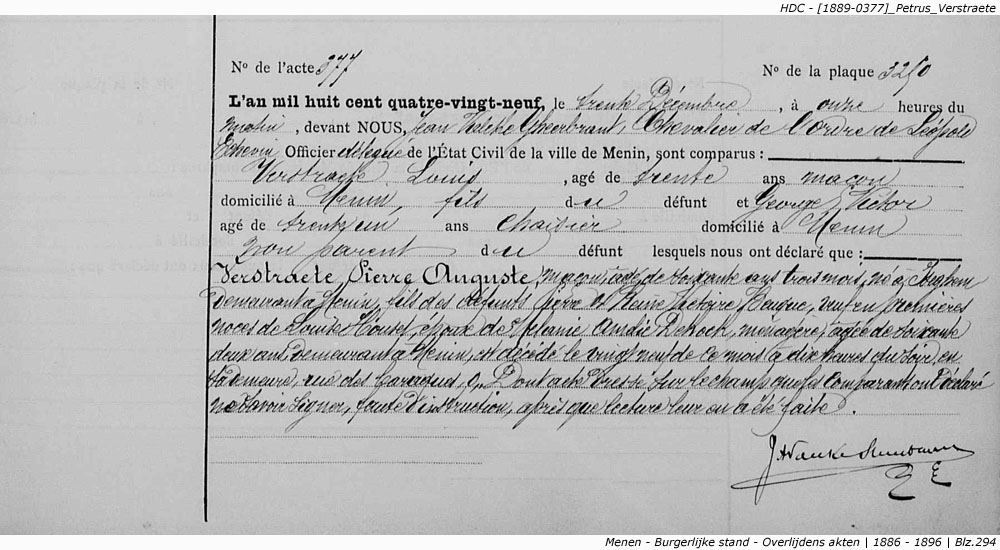 HDC - [1889-0377]_Petrus_Verstraete
N° de l'acte 377
N° de la plaque 3250
L'an mil huit cent quatre-vingt-neuf, le trente Décembre, à onze heures du
matin, devant NOUS, Jean Gheerbrant, Chevalier de l'ordre de Léopold
Echevin Officier délégué de l'État Civil de la ville de Menin, sont comparus :
Verstraete Louis, agé de trente ans maçon
domicilié à Menin, fils du défunt et George Victor
agé de trente un ans domicilié à Menin
non parent du défunt lesquels nous ont déclaré que :
Verstraete, Pierre Auguste, maçon, agé de soixante ans trois mois, né à
demeurant à Menin, fils des défunts Pierre et Reine Victoire, veuf en premières
noces de Louise, époux de Mélanie, ménagère, agée de soixante
deux ans demeurant à Menin, est décédé le vingt neuf de ce mois à dix heures du soir, en
sa demeure, rue des. Dont acte dressé sur le champ que les comparants ont déclaré
ne savoir signer, faute d'instruction, après que lecture leur en a été faite.
Menen - Burgerlijke stand - Overlijdens akten | 1886 - 1896 | Blz.294